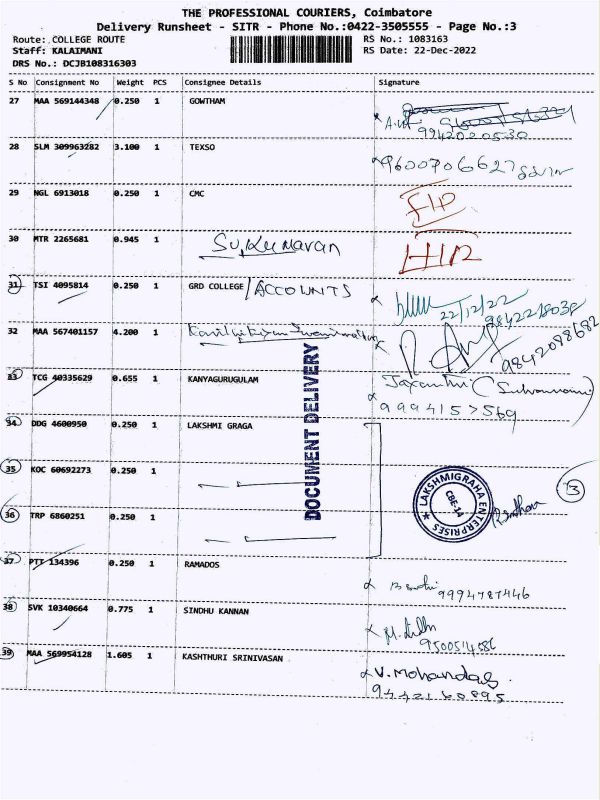 THE PROFESSIONAL COURIERS, Coimbatore
Delivery Runsheet - SITR - Phone No.:0422-3505555 - Page No.:3
Route: COLLEGE ROUTE RS No.: 1083163
Staff: KALAIMANI RS Date: 22-Dec-2022
DRS No.: DCJB108316303
S No Consignment No Weight PCS Consignee Details Signature
27 MAA 569144348 0.250 1 GOWTHAM
9942020530
28 SLM 309963282 3.100 1 TEXSO 9600706627
29 NGL 6913018 0.250 1 CMC
30 MTR 2265681 0.945 1 Sukumaran
31 TSI 4095814 0.250 1 GRD COLLEGE / ACCOUNTS 22/12/22
9842218038
32 MAA 567401157 4.200 1 9842098682
33 TCG 40335629 0.655 1 KANYAGURUGULAM
9994157569
34 DDG 4600950 0.250 1 LAKSHMI GRAGA
DOCUMENT DELIVERY
35 KOC 60692273 0.250 1
LAKSHMIGRAHA ENTERPRISES CBE-14
3
36 TRP 6860251 0.250 1
37 PTT 134396 0.250 1 RAMADOS
9994787446
38 SVK 10340664 0.775 1 SINDHU KANNAN
39 MAA 569954128 1.605 1 KASHTHURI SRINIVASAN V. Mohandas